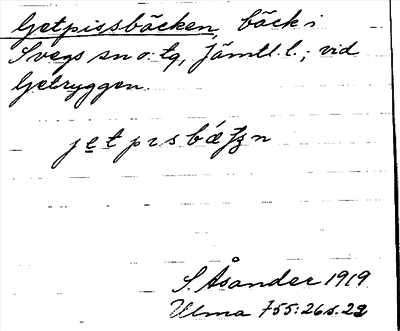 Getpissbäcken, bäck i
Svegs sn o. tg, Jämtl. l.; vid
Getryggen.
S. Åsander 1919
Ulma 755:26 s. 22